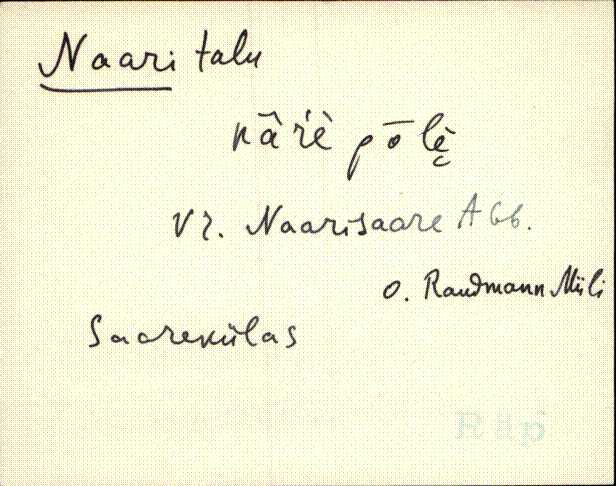 Naari talu
nāŕè pōlè̬
vr. Naarisaare Abb.
O. Raudmann Miili
Saarekülas
Räp